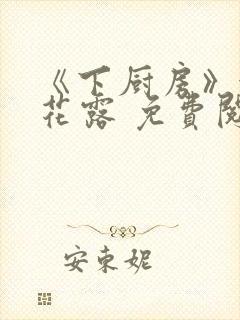 《下厨房》
花露 免費閱
安東妮